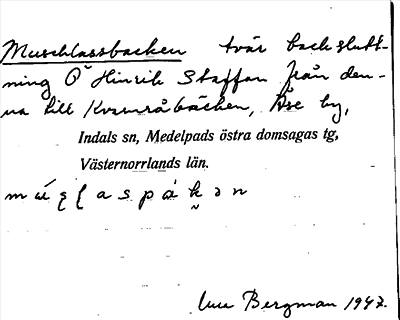 Muschlassbacken tvär backslutt-
ning Ö Hinrik Staffan från den-
na till Kvarnråbäcken, Åse by,
Indals sn, Medelpads östra domsagas tg,
Västernorrlands län.
Bergman 1947.